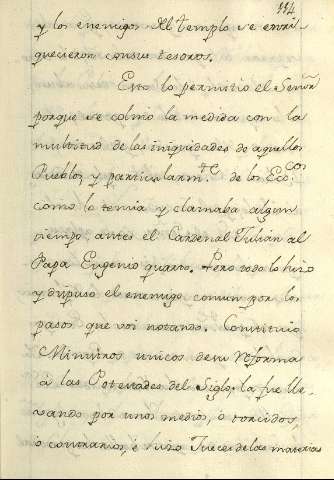 114
y los enemigos del templo se enrri-
quecieron consus tesoros.
Esto lo permitio el Señor
porque se colmo la medida con la
multitud de las iniquidades de aquellos
Pueblos, y particularm.te de los Eco.cos
como lo temia y clamaba algun
tiempo antes el Cardenal Julian al
Papa Eugenio quarto. Pero todo lo hizo
y dispuso el enemigo comun por los
pasos que voi notando. Constituio
Ministros unicos desu reforma
à las Potestades del Siglo, la fue lle-
vando por unos medios, o torcidos,
o contrarios, è hizo Jueces de las materias